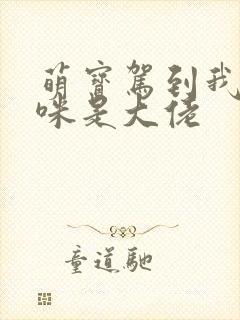 萌寶駕到我
咪是大佬
童道馳